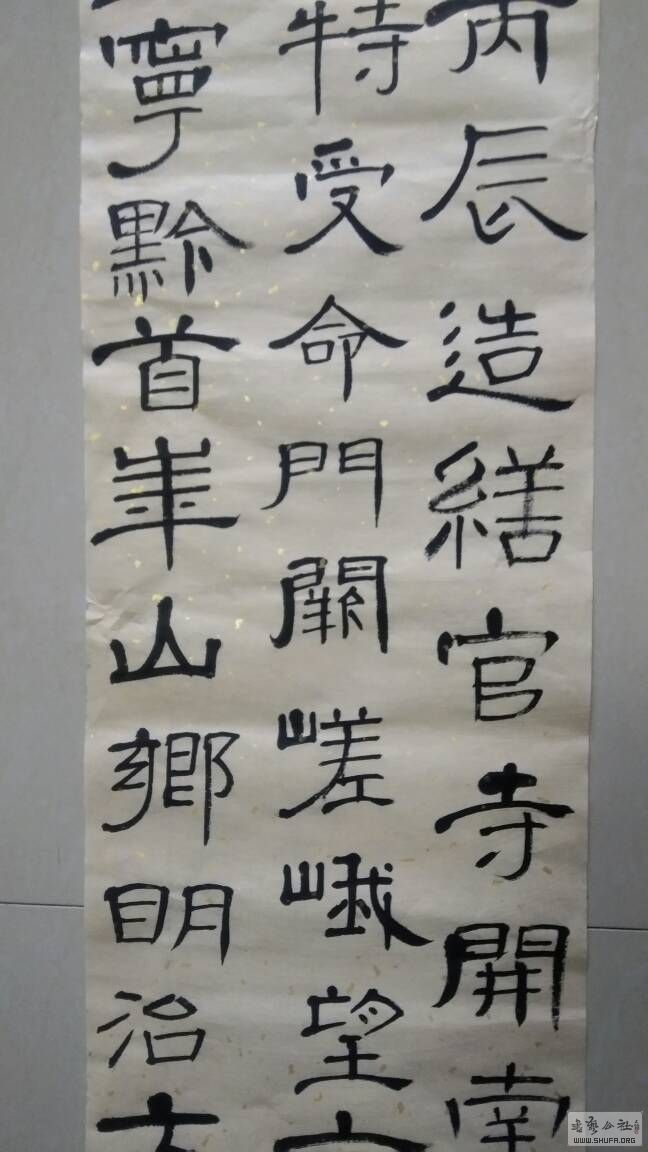 丙辰造繕官寺開南
特受命門闕嵯峨望
寧黔首崋山鄉明治
书艺公社
WWW.SHUFA.ORG